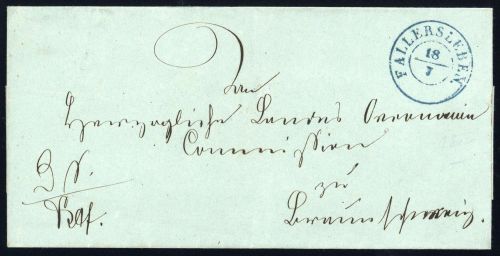 FALLERSLEBEN
18/7
An
Herzogliche Landes Oeconomie
Commission
zu
Braunschweig.